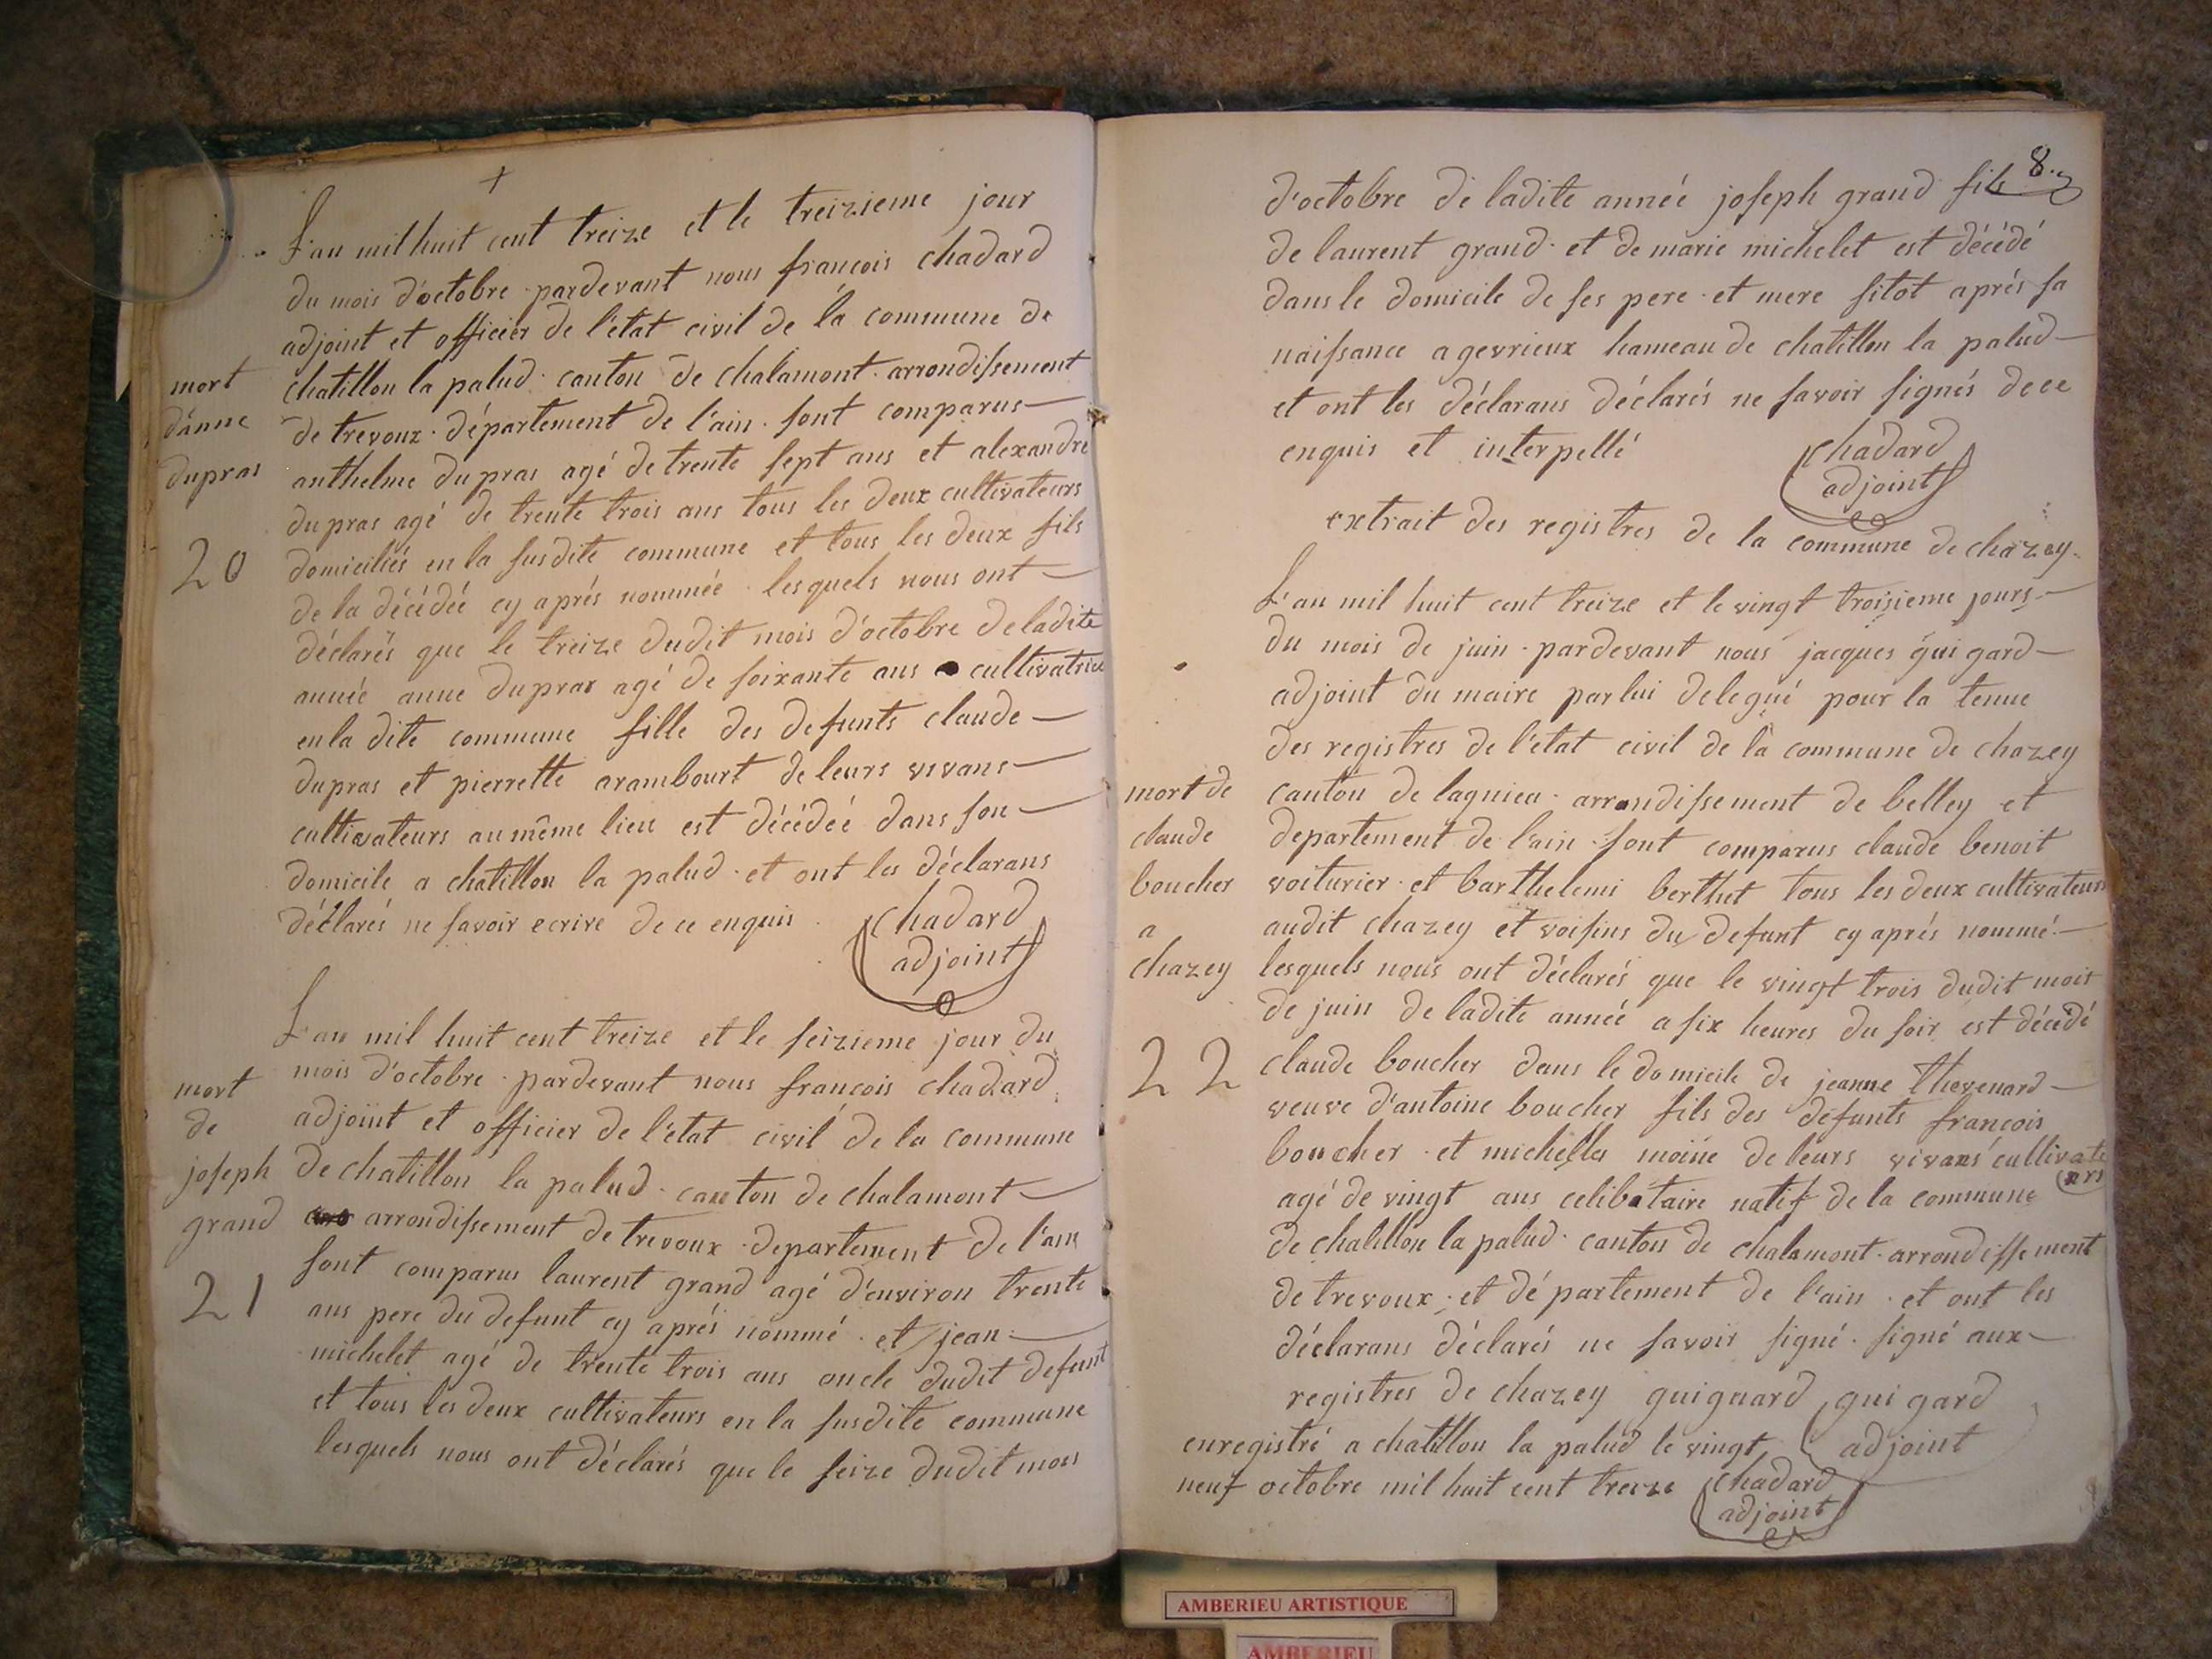 +
L'an mil huit cent treize et le treizieme jour
du mois d'octobre pardevant nous françois chadard
adjoint et officier de l'état civil de la commune de
chatillon la palud canton de chalamont arrondissement
de trevoux département de l'ain sont comparus
anthelme dupras agé de trente sept ans et alexandre
dupras agé de trente trois ans tous les deux cultivateurs
domiciliés en la susdite commune et tous les deux fils
de la décédéé cy aprés nommée lesquels nous ont
déclarés que le treize dudit mois d'octobre de ladite
année anne dupras agé de soixante ans cultivatrice
en la dite commune fille des defunts claude
dupras et pierrette arambourt de leurs vivans
cultivateurs au même lieu est décédéé dans son
domicile a chatillon la palud et ont les déclarans
déclarés ne savoir ecrire de ce enquis
chadard
adjoint
mort
d'anne
dupras
20
L'an mil huit cent treize et le seizieme jour du
mois d'octobre pardevant nous françois chadard
adjoint et officier de l'état civil de la commune
de chatillon la palud canton de chalamont
arrondissement de trevoux departement de l'ain
sont comparus laurent grand agé d'environ trente
ans pere du defunt cy aprés nommé et jean
michelet agé de trente trois ans oncle dudit defunt
et tous les deux cultivateurs en la susdite commune
lesquels nous ont déclarés que le seize dudit mois
mort
de
joseph
grand
21
8
d'octobre de ladite année joseph grand fils
de laurent grand et de marie michelet est décédé
dans le domicile de ses pere et mere sitot aprés sa
naissance a gevrieux hameau de chatillon la palud
et ont les déclarans déclarés ne savoir signés de ce
enquis et interpellé
chadard
adjoint
extrait des registres de la commune de chazey
L'an mil huit cent treize et le vingt troisieme jours
du mois de juin pardevant nous jacques guigard
adjoint du maire par lui delegué pour la tenue
des registres de l'état civil de la commune de chazey
canton de lagnieu arrondissement de belley et
departement de l'ain sont comparus claude benoit
voiturier et barthelemi berthet tous les deux cultivateurs
audit chazey et voisins du defunt cy aprés nommé
lesquels nous ont déclarés que le vingt trois dudit mois
de juin de ladite année a six heures du soir est décédé
claude boucher dans le domicile de jeanne thevenard
veuve d'antoine boucher fils des defunts françois
boucher et michelle moine de leurs vivans cultivate
urs
agé de vingt ans celibataire natif de la commune
de chatillon la palud canton de chalamont arrondissement
de trevoux et département de l'ain et ont les
déclarans déclarés ne savoir signé signé aux
registres de chazey guiguard guigard
adjoint
enregistré a chatillon la palud le vingt
neuf octobre mil huit cent treize
chadard
adjoint
mort de
claude
boucher
a
chazey
22
AMBERIEU ARTISTIQUE
AMBERIEU